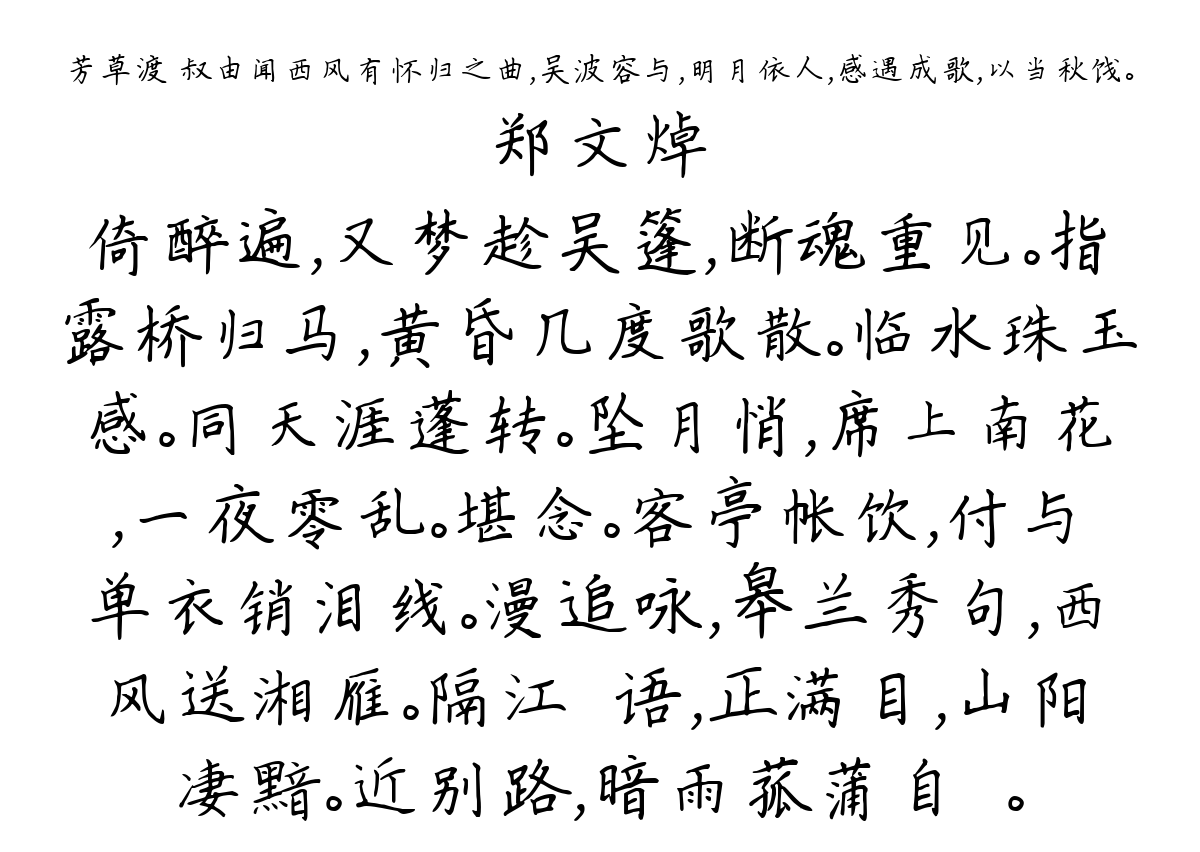 芳草渡 叔由闻西风有怀归之曲,吴波容与,明月依人,感遇成歌,以当秋饯。
郑文焯
倚醉遍,又梦趁吴篷,断魂重见。指
露桥归马,黄昏几度歌散。临水珠玉
感。同天涯蓬转。坠月悄,席上南花
,一夜零乱。堪念。客亭帐饮,付与
单衣销泪线。漫追咏,皋兰秀句,西
风送湘雁。隔江 语,正满目,山阳
凄黯。近别路,暗雨菰蒲自 。